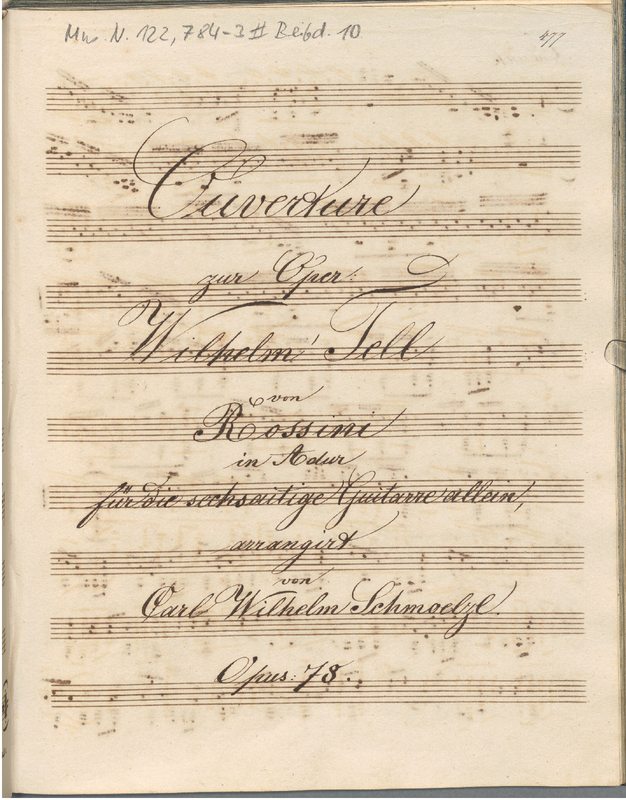 Mus. N. 122,784-3 # Beibd. 10
477
Ouverture
zur Oper:
Wilhelm Tell
von
Rossini
in A dur
für die sechsaitige Guitarre allein,
arrangirt
von
Carl Wilhelm Schmoelzl.
Opus: 78.